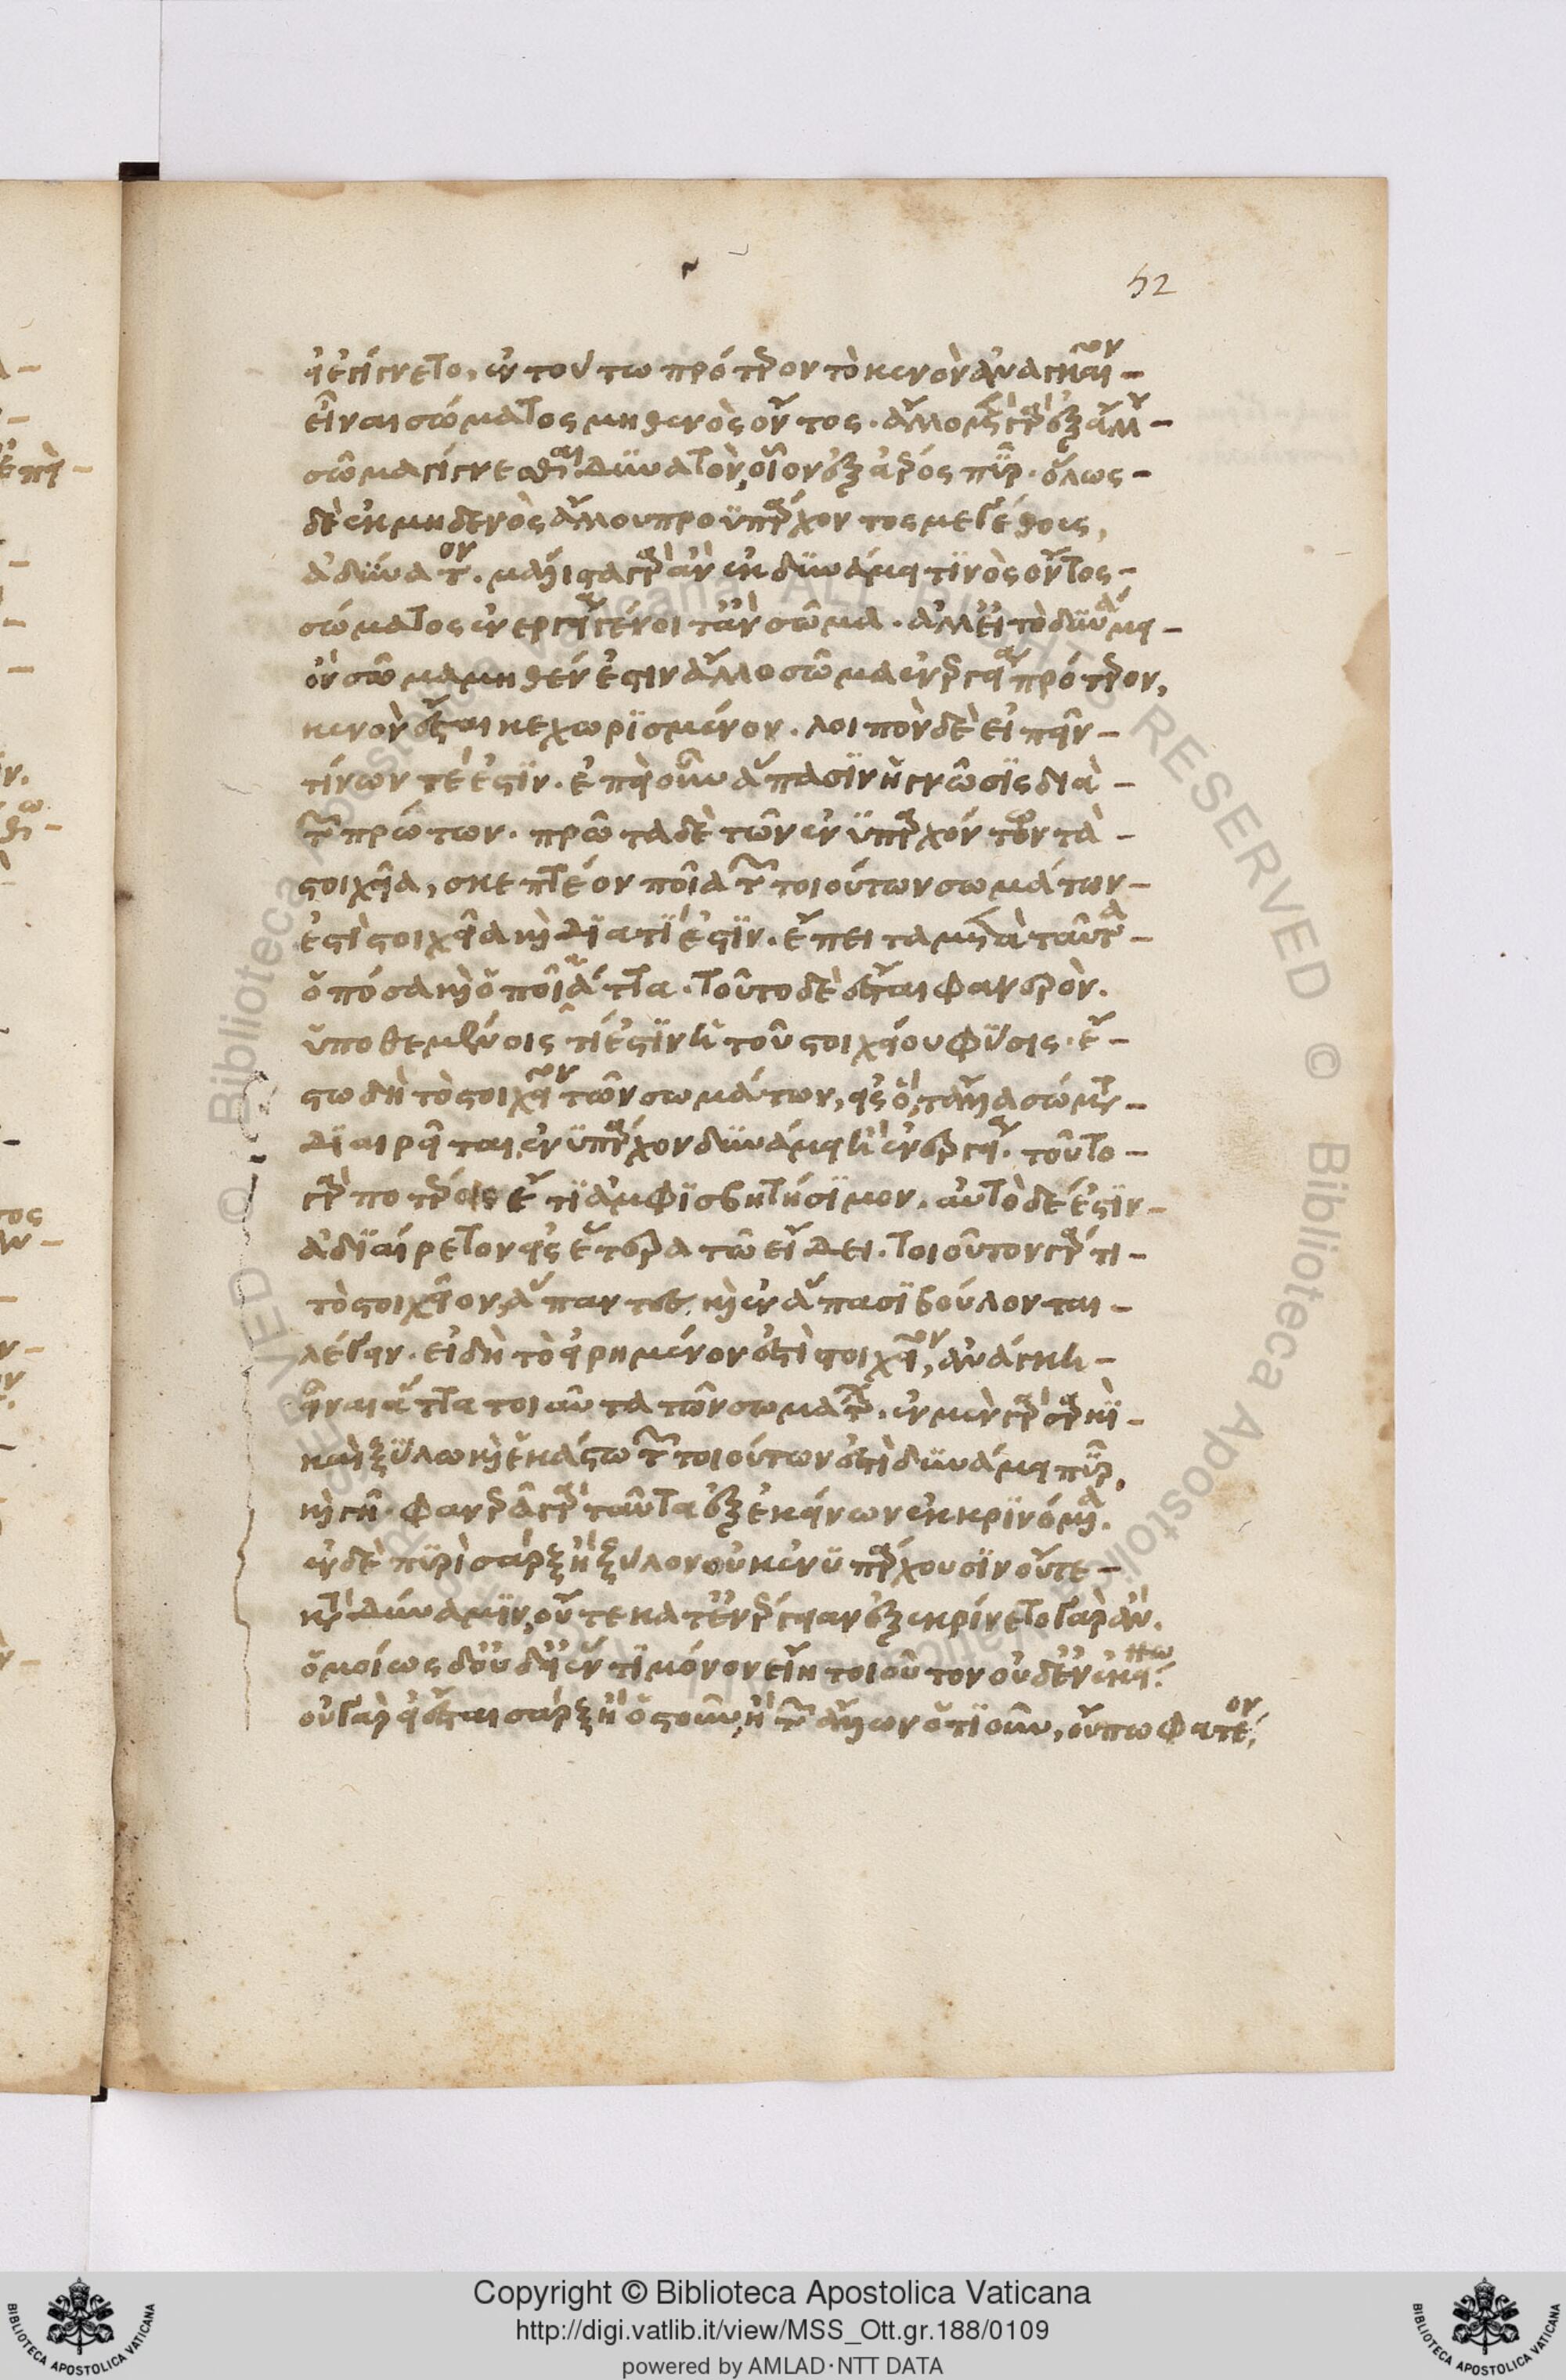 52
εἰ ἐγίγνετο, ἐν τούτω πρότερον τὸ κενὸν ἀναγκαῖον –
εἶναι σώματος μηθενὸς ὄντος. ἄλλο μὲν γὰρ ἐξ ἄλλου –
σῶμα γίγνεσθαι δυνατὸν, οἷον ἐξ ἀέρος πῦρ. ὅλως –
δὲ ἐκ μηδενὸς ἄλλου προϋπάρχοντος μεγέθους,
ἀδύνατον. μάλιστα γὰρ ἂν ἐκ δυνάμει τινὸς ὄντος –
σώματος ἐνεργείᾳ γένοιτ' ἂν σῶμα. ἀλλ' εἰ τὸ δυνάμει –
ὂν σῶμα μηθέν ἐστιν ἄλλο σῶμα ἐνεργείᾳ πρότερον,
κενὸν ἔσται κεχωρισμένον. λοιπὸν δὲ εἰπεῖν –
τίνων τέ ἐστιν. ἐπεὶ οὖν ἅπασιν ἡ γνῶσις διὰ –
τῶν πρώτων. πρῶτα δὲ τῶν ἐνυπαρχόντων τὰ –
στοιχεῖα, σκεπτέον ποῖα τῶν τοιούτων σωμάτων –
ἐστὶ στοιχεῖα καὶ διατί ἐστιν. ἔπειτα μετὰ ταῦτα –
ὁπόσα καὶ ὁποῖ' ἄττα. τοῦτο δὲ ἔσται φανερὸν.
ὑποθεμένοις τί ἐστιν ἡ τοῦ στοιχείου φύσις. ἔ –
στω δὴ τὸ στοιχεῖον τῶν σωμάτων, εἰς ὃ τἄλλα σώματα –
διαιρεῖται, ἐνυπάρχον δυνάμει ἢ ἐνεργείᾳ. τοῦτο –
γὰρ ποτέρως ἔτι ἀμφισβητήσιμον. αὐτὸ δέ ἐστιν –
ἀδιαίρετον εἰς ἕτερα τῶ εἴδει. τοιοῦτον γάρ τι –
τὸ στοιχεῖον, ἅπαντες καὶ ἐν ἅπασι βούλονται –
λέγειν. εἰ δὴ τὸ εἰρημένον ἐστὶ στοιχεῖον, ἀνάγκη –
εἶναι ἄττα τοιαῦτα τῶν σωμάτων. ἐν μὲν γὰρ σαρκὶ –
καὶ ξύλω καὶ ἑκάστω τῶν τοιούτων ἐστὶ δυνάμει πῦρ,
καὶ γῆ. φανερὰ γὰρ ταῦτα ἐξ ἐκείνων ἐκκρινόμενα.
ἐν δὲ πυρὶ σὰρξ ἢ ξύλον οὐκ ἐνυπάρχουσιν οὔτε –
κατὰ δύναμιν, οὔτε κατ' ἐνέργειαν· ἐξεκρίνετο γὰρ ἄν.
ὁμοίως δ' οὐδ' εἰ ἕν τι μόνον εἴη τοιοῦτον οὐδ' ἐν ἐκείνω.
οὐ γὰρ εἰ ἔσται σὰρξ ἢ ὀστοῦν, ἢ τῶν ἄλλων ὁτιοῦν, οὔπω φατέον
Copyright © Biblioteca Apostolica Vaticana
http://digi.vatlib.it/view/MSS_Ott.gr.188/0109
powered by AMLAD·NTT DATA